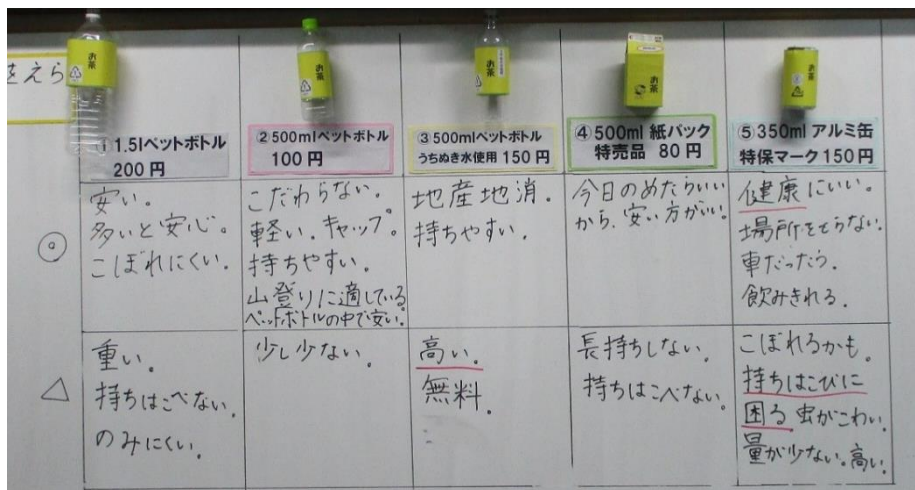 をえら
お茶
お茶
お茶
お茶
お茶
①1.5lペットボトル
200円
②500mlペットボトル
100円
③500mlペットボトル
うちぬき水使用 150円
④500ml 紙パック
特売品 80円
⑤350ml アルミ缶
特保マーク150円
◎
安い。
多いと安心。
こぼれにくい.
こだわらない。
軽い.キャップ。
持ちやすい.
山登りに適している
ペットボトルの中で安い.
地産地消.
持ちやすい.
今日のめたらいい
から、安い方がいい.
健康にいい。
場所をとらない.
車だったら.
飲みきれる.
△
重い.
持ちはこべない.
のみにくい.
少し少ない.
高い.
無料.
長持ちしない.
持ちはこべない.
こぼれるかも.
持ちはこびに
困る 虫がこわい.
量が少ない.高い.